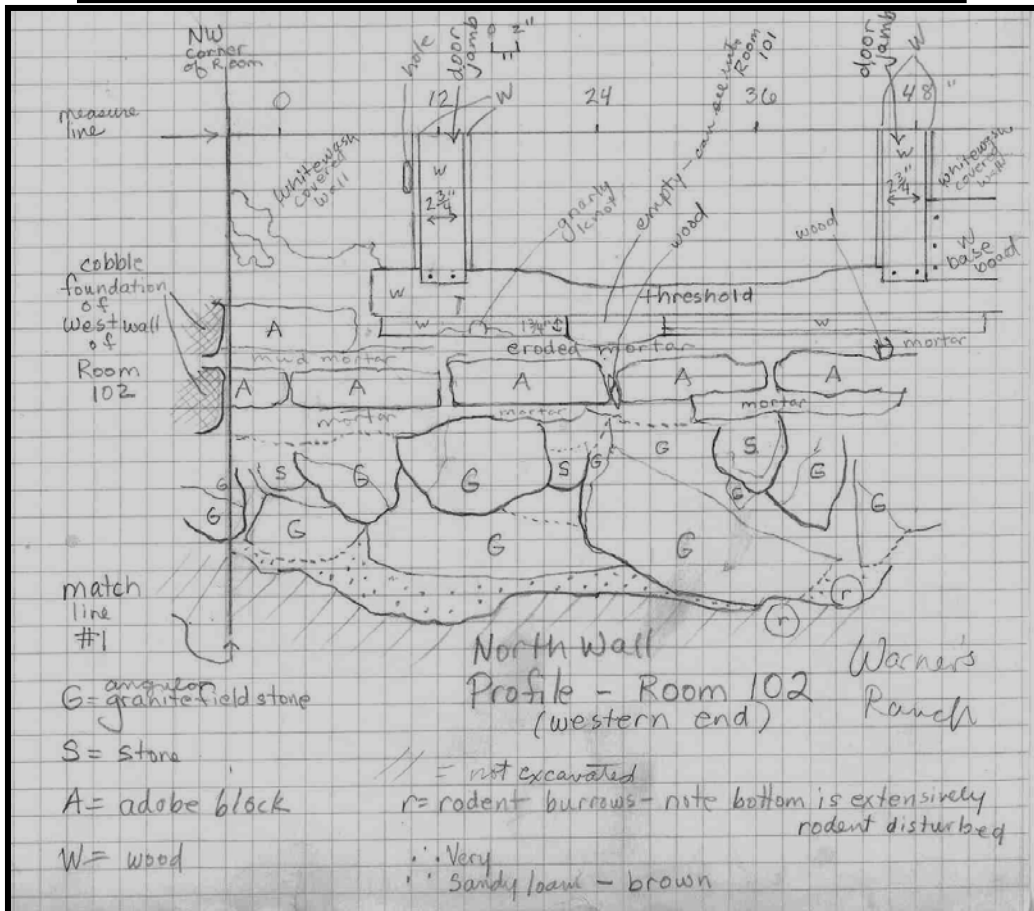 NW
corner
of Room
hole
door
jamb
0 2"
empty - can see into
Room
101
door
jamb
W
measure
line
0
12
W
24
36
48"
whitewash
covered
wall
W
2 3/4"
gnarly
knot
wood
wood
W
2 3/4"
whitewash
covered
wall
W
base
board
cobble
foundation
of
west wall
of
Room
102
W
T
threshold
A
W
1 3/4"
W
mud mortar
eroded mortar
mortar
A
A
A
A
A
mortar
mortar
mortar
G
S
G
G
S
G
G
S
G
G
G
G
G
G
G
G
r
r
match
line
#1
North Wall
Profile - Room 102
(western end)
Warner's
Ranch
angular
G = granite field stone
S = stone
A = adobe block
W = wood
// = not excavated
r = rodent burrows - note bottom is extensively
rodent disturbed
∴ Very
Sandy loam - brown